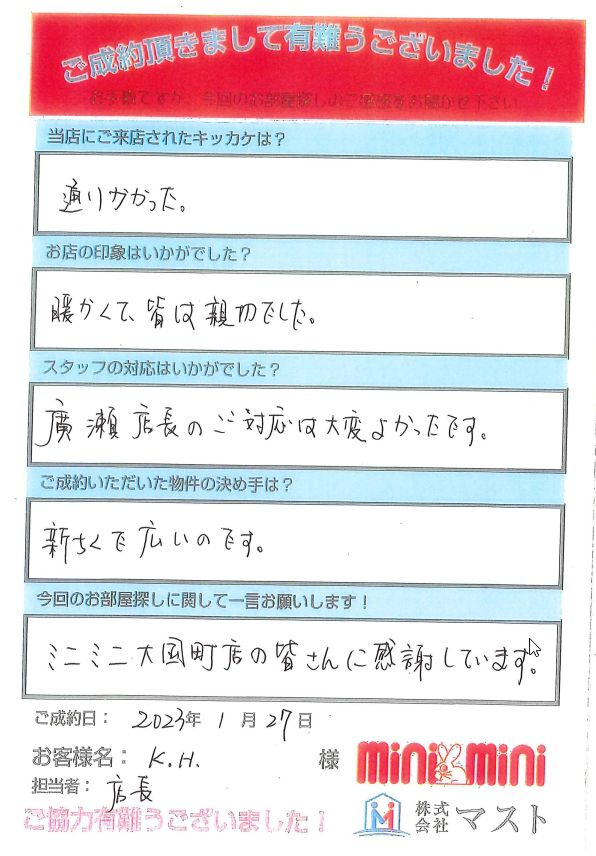 ご成約頂きまして有難うございました！
お手数ですが、今回のお部屋探しのご感想をお聞かせ下さい。
当店にご来店されたキッカケは？
通りかかった。
お店の印象はいかがでした？
暖かくて、皆は親切でした。
スタッフの対応はいかがでした？
廣瀬店長のご対応は大変よかったです。
ご成約いただいた物件の決め手は？
新ちくで広いのです。
今回のお部屋探しに関して一言お願いします！
ミニミニ大国町店の皆さんに感謝しています。
ご成約日： 2023年 1月27日
お客様名： K.H. 様
minimini
担当者： 店長
株式会社マスト
ご協力有難うございました！